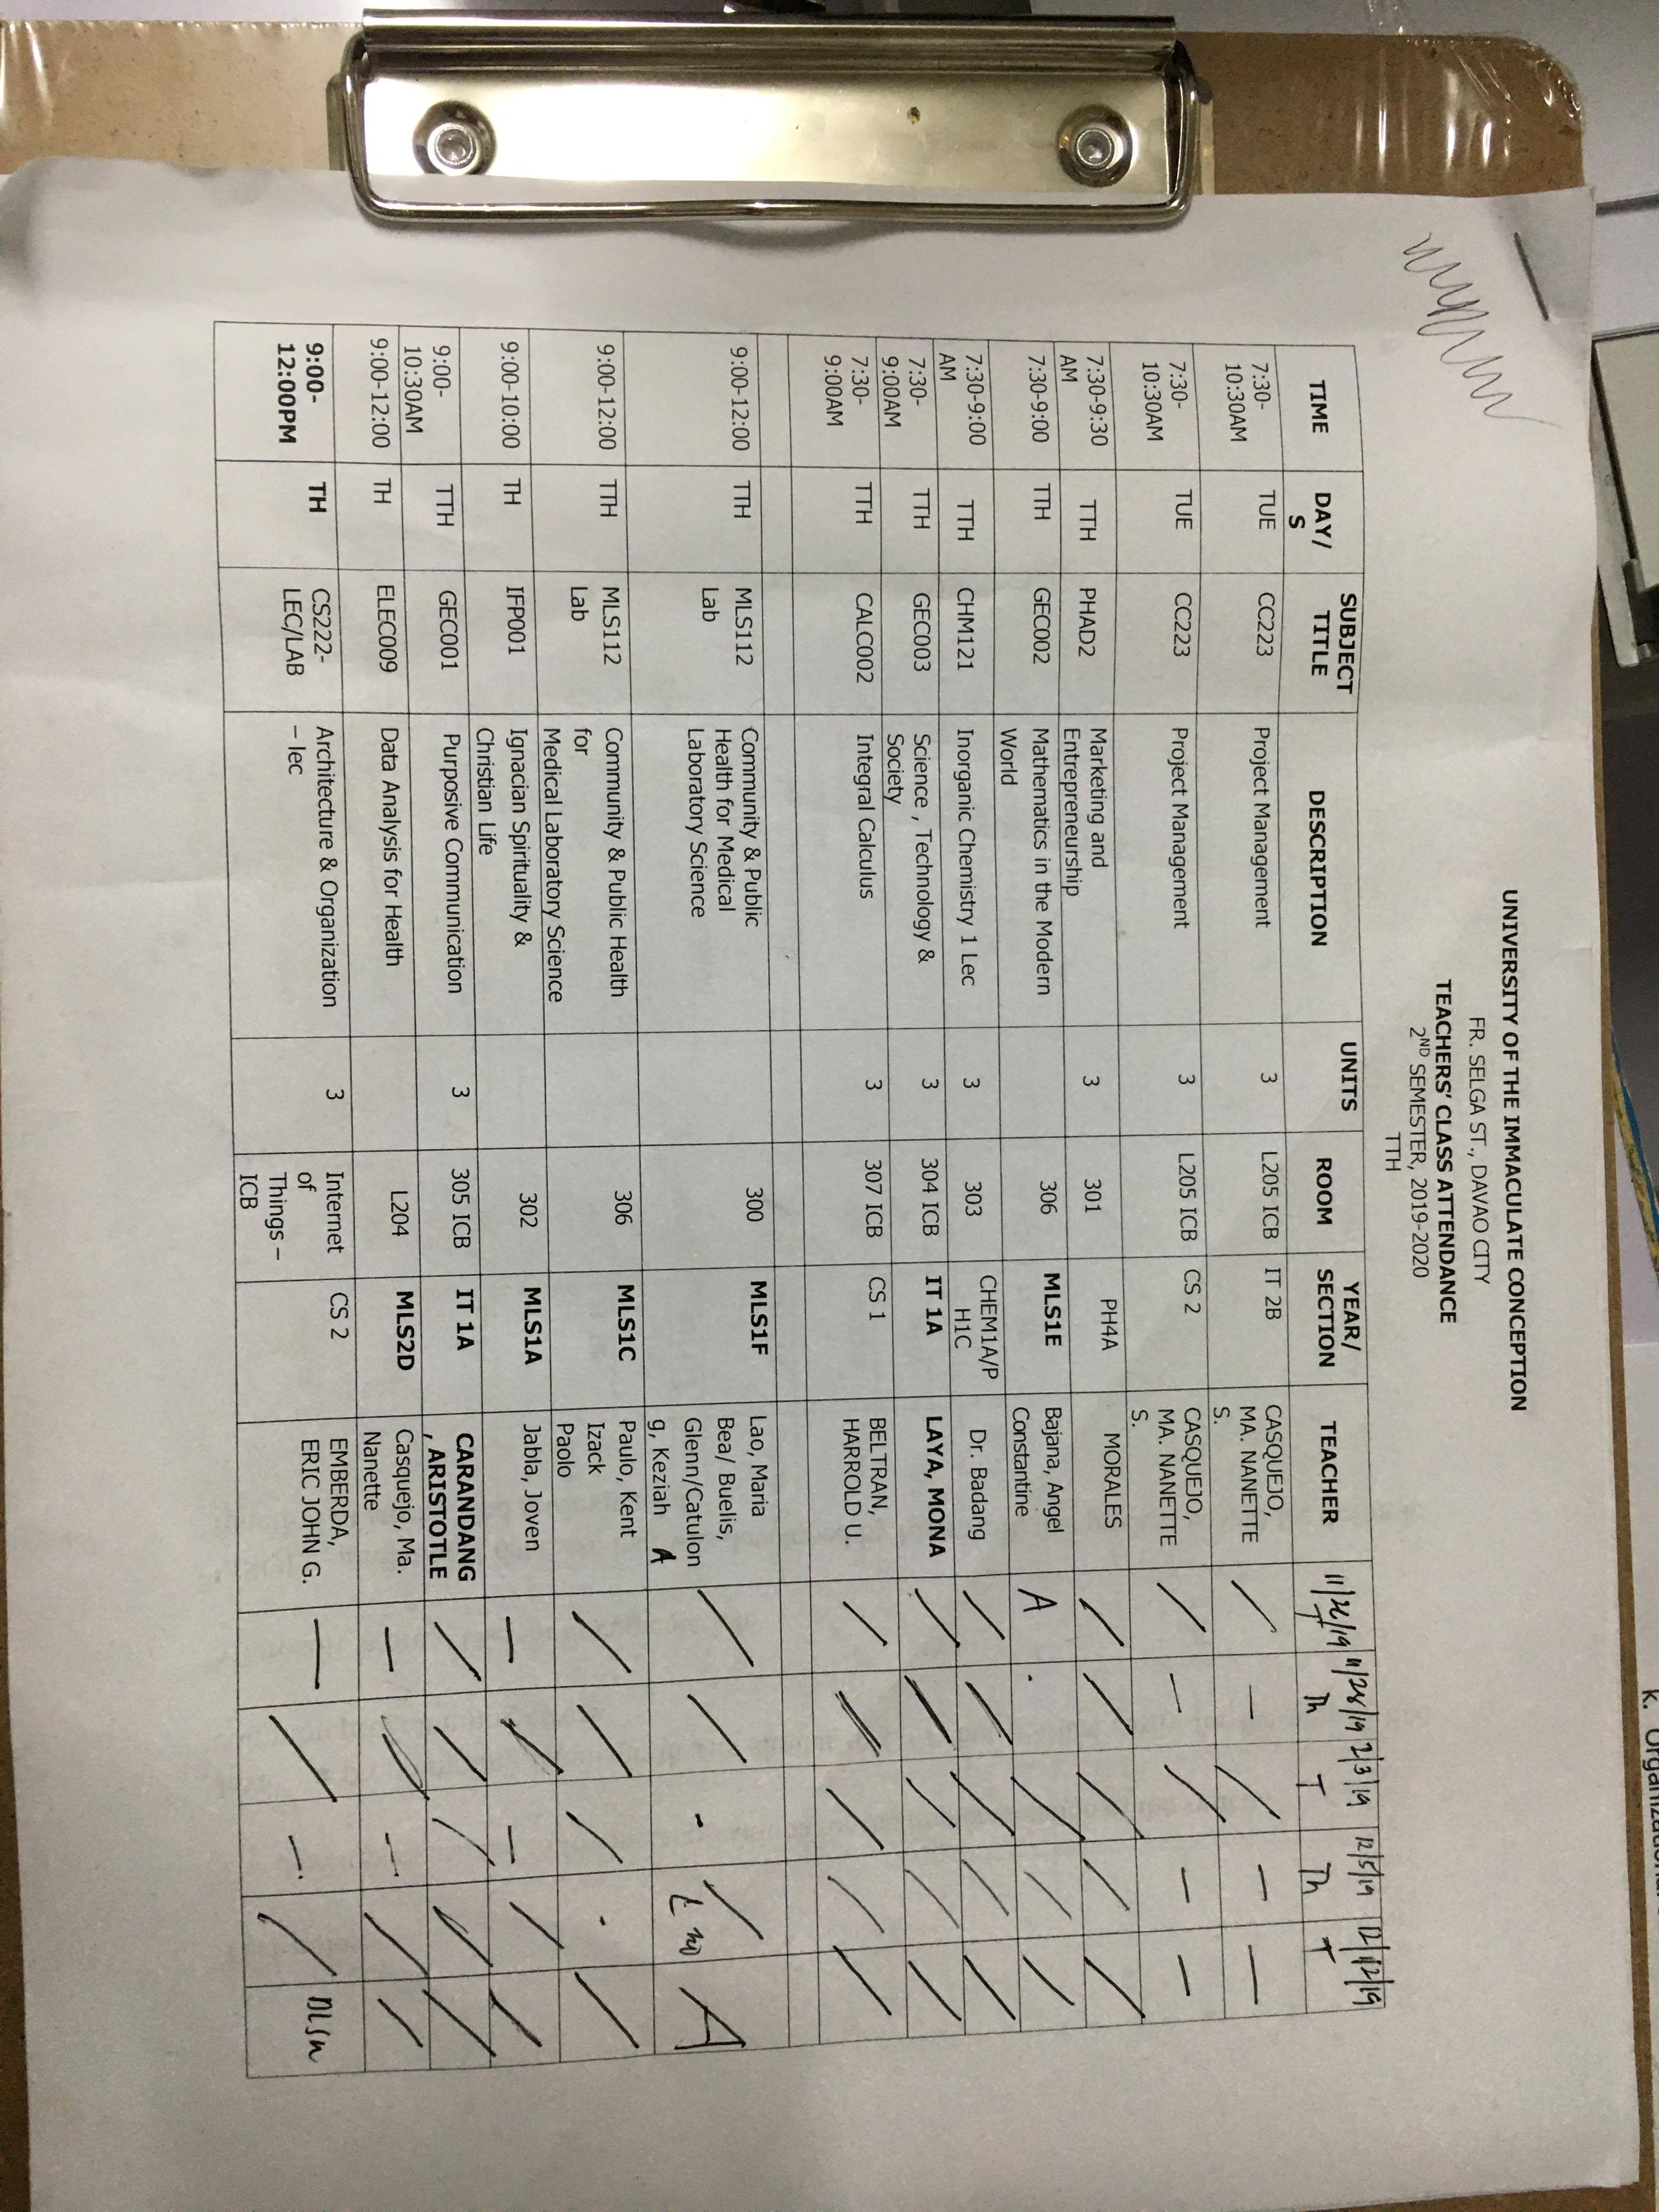 k. Organizational
UNIVERSITY OF THE IMMACULATE CONCEPTION
FR. SELGA ST., DAVAO CITY
TEACHERS' CLASS ATTENDANCE
2ND SEMESTER, 2019-2020
TTH
TIME DAY/S SUBJECT TITLE DESCRIPTION UNITS ROOM YEAR/SECTION TEACHER 11/26/19 T 11/28/19 Th 2/3/19 T 12/5/19 Th 12/12/19 T
7:30-10:30AM TUE CC223 Project Management 3 L205 ICB IT 2B CASQUEJO, MA. NANETTE S. / — / — —
7:30-10:30AM TUE CC223 Project Management 3 L205 ICB CS 2 CASQUEJO, MA. NANETTE S. / — / — —
7:30-9:30 AM TTH PHAD2 Marketing and Entrepreneurship 3 301 PH4A MORALES / / / / /
7:30-9:00 TTH GEC002 Mathematics in the Modern World 306 MLS1E Bajana, Angel Constantine A . / / /
7:30-9:00 AM TTH CHM121 Inorganic Chemistry 1 Lec 3 303 CHEM1A/PH1C Dr. Badang / / / / /
7:30-9:00AM TTH GEC003 Science , Technology & Society 3 304 ICB IT 1A LAYA, MONA / / / / /
7:30-9:00AM TTH CALC002 Integral Calculus 3 307 ICB CS 1 BELTRAN, HARROLD U. / / / / /
9:00-12:00 TTH MLS112 Lab Community & Public Health for Medical Laboratory Science 300 MLS1F Lao, Maria Bea/ Buelis, Glenn/Catulong, Keziah A / / - / A
9:00-12:00 TTH MLS112 Lab Community & Public Health for Medical Laboratory Science 306 MLS1C Paulo, Kent Izack Paolo / / / . /
9:00-10:00 TH IFP001 Ignacian Spirituality & Christian Life 302 MLS1A Jabla, Joven — / — / /
9:00-10:30AM TTH GEC001 Purposive Communication 3 305 ICB IT 1A CARANDANG, ARISTOTLE / / / / /
9:00-12:00 TH ELEC009 Data Analysis for Health L204 MLS2D Casquejo, Ma. Nanette — / — / /
9:00-12:00PM TH CS222-LEC/LAB Architecture & Organization – lec 3 Internet of Things – ICB CS 2 EMBERDA, ERIC JOHN G. — / — /